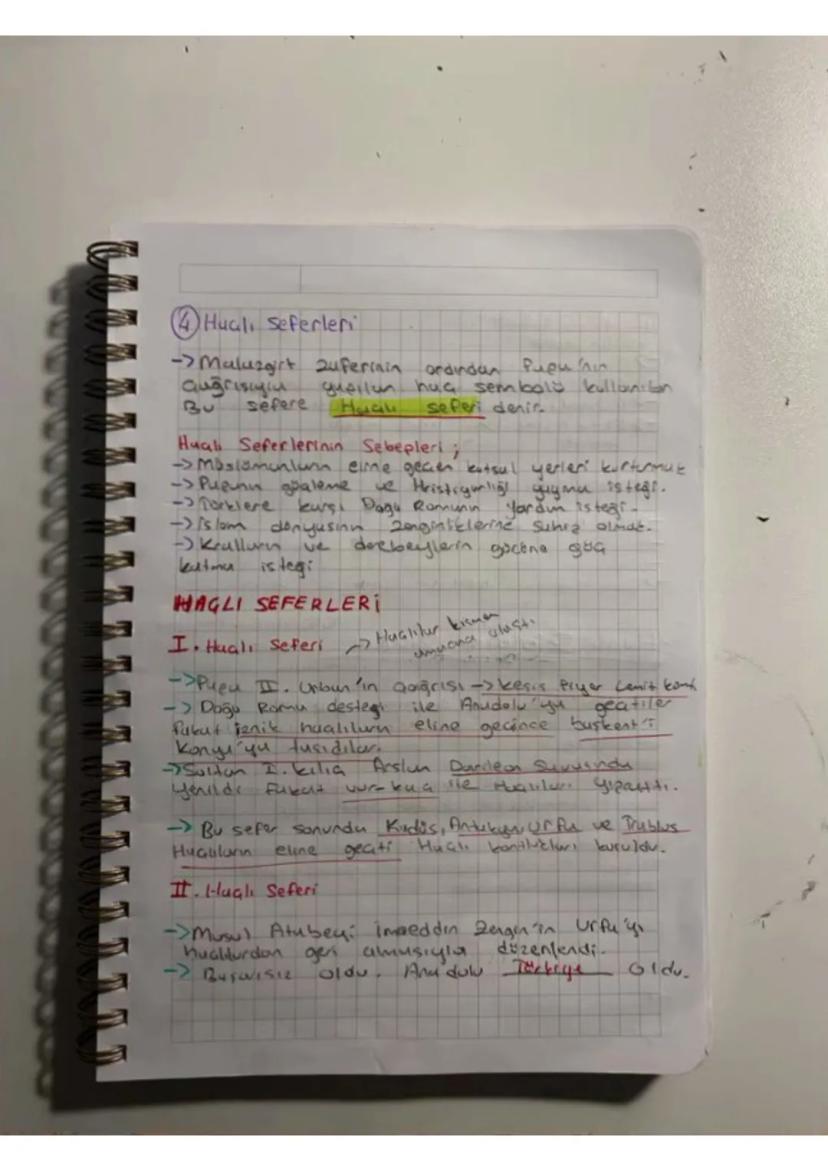 ④ Haçlı Seferleri
-> Malazgirt zaferinin ardından Papa'nın
çağrısıyla yapılan haç sembolü kullanılan
Bu sefere Haçlı seferi denir.
Haçlı Seferlerinin Sebepleri ;
-> Müslümanların eline geçen kutsal yerleri kurtarmak
-> Papanın ve Hristiyanlığı yayma isteği.
-> Türklere karşı Doğu Romanın yardım isteği.
-> İslam dünyasının zenginliklerine sahip olmak.
-> Kralların ve derebeylerin gücüne güç
katma isteği
HAÇLI SEFERLERİ
I. Haçlı Seferi -> Haçlılar kısmen
amacına ulaştı
-> Papa II. Urban'ın çağrısı -> keşiş Piyer Lermit
-> Doğu Roma desteği ile Anadolu'ya geçtiler
fakat iznik haçlıların eline geçince başkent'i
Konya'ya taşıdılar.
-> Sultan I. kılıç Arslan Savaşında
yenildi fakat vur-kaç ile Haçlıları yıprattı.
-> Bu sefer sonunda Kudüs, Antakya, Urfa ve Trablus
Haçlıların eline geçti Haçlı kontlukları kuruldu.
II. Haçlı Seferi
-> Musul Atabeyi imaeddin Zengin'in Urfa'yı
haçlılardan geri almasıyla düzenlendi.
-> Başarısız oldu. Anadolu Türkiye oldu.